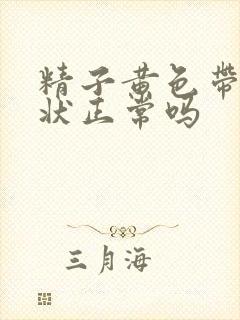 精子黄色带
状正常吗
三月海